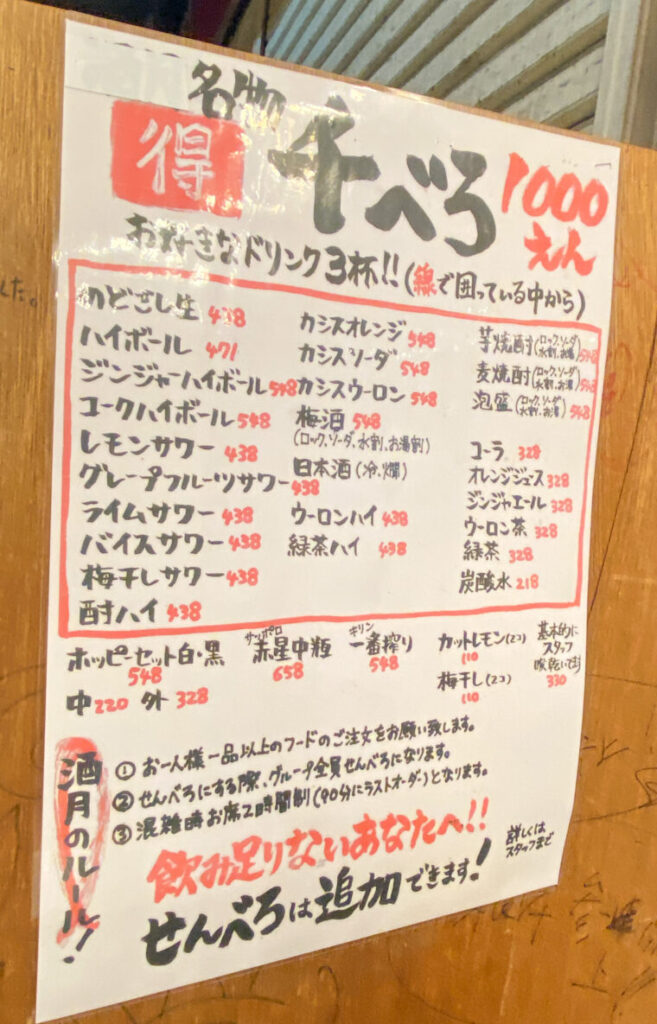 名物
得
千べろ
1000
えん
お好きなドリンク3杯!!(線で囲っている中から)
のどごし生 438
ハイボール 471
ジンジャーハイボール 548
コークハイボール 548
レモンサワー 438
グレープフルーツサワー 438
ライムサワー 438
バイスサワー 438
梅干しサワー 438
酎ハイ 438
カシスオレンジ 548
カシスソーダ 548
カシスウーロン 548
梅酒 548
(ロック、ソーダ、水割、お湯割)
日本酒(冷、燗)
ウーロンハイ 438
緑茶ハイ 438
芋焼酎(ロック、ソーダ、水割、お湯) 548
麦焼酎(ロック、ソーダ、水割、お湯) 548
泡盛(ロック、ソーダ、水割、お湯) 548
コーラ 328
オレンジジュース 328
ジンジャエール 328
ウーロン茶 328
緑茶 328
炭酸水 218
ホッピーセット白・黒
548
中220 外 328
サッポロ
赤星中瓶
658
キリン
一番搾り
548
カットレモン(2コ)
110
梅干し(2コ)
110
基本的に
スタッフ
330
酒月のルール!
① お一人様一品以上のフードのご注文をお願い致します。
② せんべろにする際、グループ全員せんべろになります。
③ 混雑時お席2時間制(90分にラストオーダー)となります。
飲み足りないあなたへ!!
せんべろは追加できます!
詳しくは
スタッフまで
した。